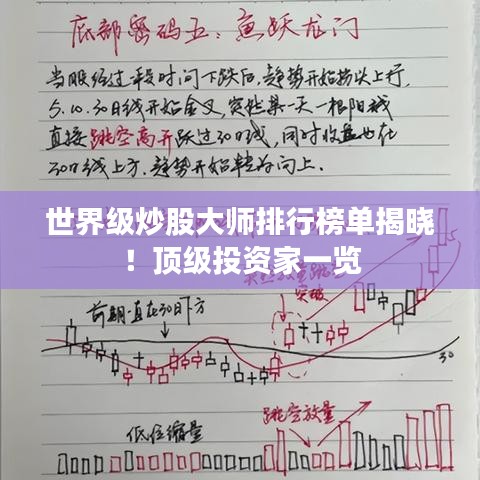 底部密码五:鱼跃龙门
当股经过一段时间下跌后,趋势开始拐头上行,
5.10.30日线开始金叉,突然某一天一根阳线
直接跳空高开跃过30日线,同时收盘也在
30日线上方,趋势开始转为向上.
世界级炒股大师排行榜单揭晓
！顶级投资家一览
突破
前期一直在30日下方
30
跳空放量
低位缩量